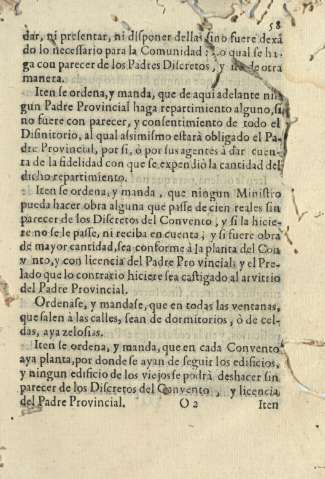 58
dar, ni presentar, ni disponer dellas sino fuere dexã
do lo necessario para la Comunidad: Lo qual se ha
ga con parecer de los Padres Discretos, y no de otra
manera.
Iten se ordena, y manda, que de aqui adelante nin
gun Padre Provincial haga repartimiento alguno, si
no fuere con parecer, y consentimiento de todo el
Disinitorio, al qual assimismo estarà obligado el Pa
dre Provincial, por si, ò por sus agentes à dar cuen
ta de la fidelidad con que se expendiò la cantidad del
dicho repartimiento.
Iten se ordena, y manda, que ningun Ministro
pueda hacer obra alguna que passe de cien reales sin
parecer de los Discretos del Convento, y si la hicie
re no se le passe, ni reciba en cuenta; y si fuere obra
de mayor cantidad, sea conforme à la planta del Con
v nto, y con licencia del Padre Provincial; y el Pre
lado que lo contrario hiciere sea castigado al arvitrio
del Padre Provincial.
Ordenase, y mandase, que en todas las ventanas,
que salen à las calles, sean de dormitorios, ò de cel-
das, aya zelosias.
Iten se ordena, y manda, que en cada Convento
aya planta, por donde se ayan de seguir los edificios,
y ningun edificio de los viejos se podrà deshacer sin
parecer de los Discretos del Convento, y licencia
del Padre Provincial. O 2 Iten